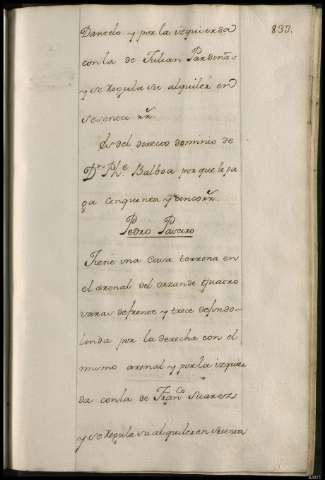 833.
Danoelo y por la izquierda
con la de Julian Pardeñas
y se Regula su alquiler en
sesenta rr.
Es del directo dominio de
Dn. Phe. Balboa por que le pa
ga cinquenta y cinco rr.
Pedro Pavero
Tiene una casa terrena en
el arenal del orzan de quatro
varas de frente y trece de fondo
linda por la derecha con el
mismo arenal y por la izquier
da con la de Franco Suarez
y se Regula su alquiler en